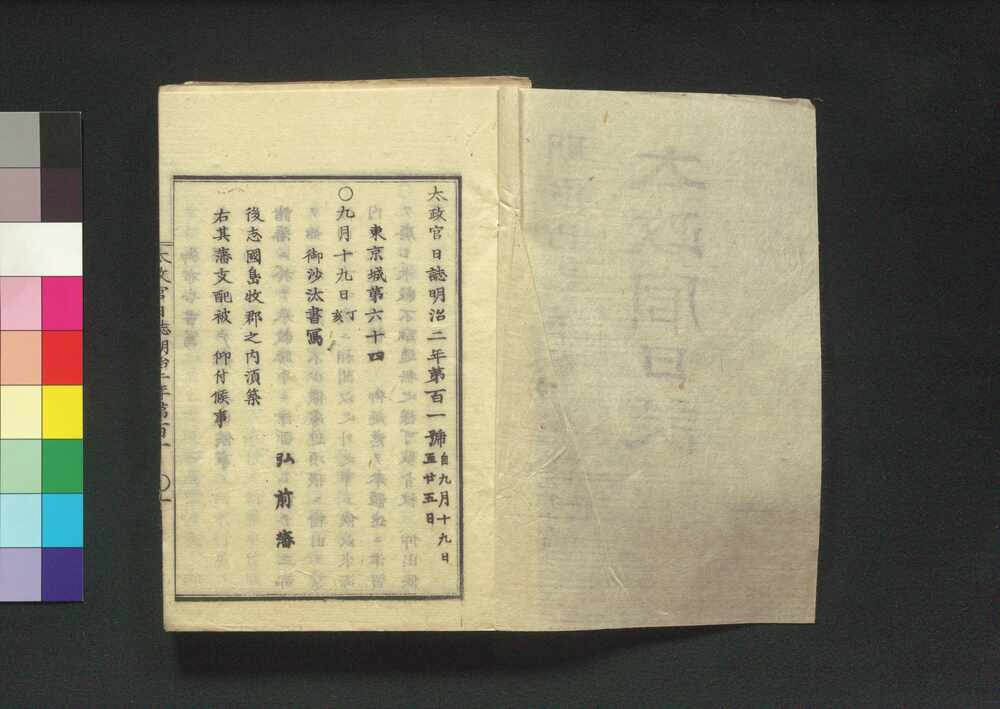 太政官日誌明治二年第百一號 自九月十九日 至廿五日
東京城第六十四
〇九月十九日 丁亥
御沙汰書寫
弘前藩
後志國島牧郡之内須築
右其藩支配被 仰付候事
太政官日誌明治二年第百一 〇一